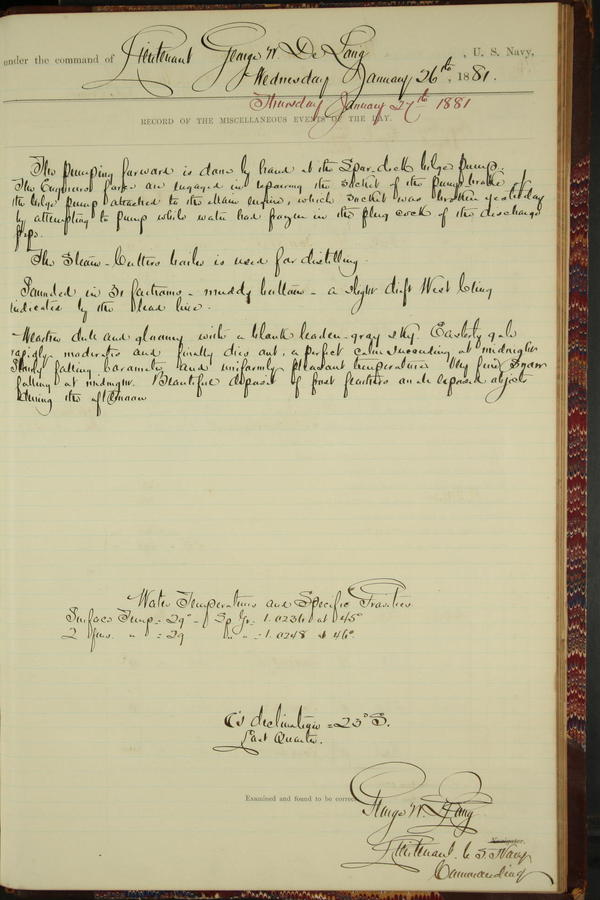 under the command of Lieutenant George W. De Long, U. S. Navy,
Wednesday January 26th, 1881.
Thursday January 27th 1881
RECORD OF THE MISCELLANEOUS EVENTS OF THE DAY.
The pumping forward is done by hand at the Spar-deck bilge pump.
The Engineers force are engaged in repairing the socket of the pump brake of
the bilge pump attached to the Main engine, which socket was broken yesterday
by attempting to pump while water had frozen in the plug cock of the discharge
pipe.
The Steam-Cutters boiler is used for distilling.
Sounded in 31 fathoms - muddy bottom - a slight drift West being
indicated by the lead line.
Weather dull and gloomy with a blank leaden-gray sky. Easterly gale
rapidly moderates and finally dies out, a perfect calm succeeding at midnight.
Slowly falling barometer and uniformly pleasant temperature. Very fine Snow
falling at midnight. Beautiful deposit of frost feathers on all exposed objects
during the afternoon
Water Temperatures and Specific Gravities
Surface Temp = 29° - Sp Gr = 1.0236 at 45°
2 fms. " = 29 " " = 1.0248 at 46°.
☾'s declination = 23° S.
Last Quarter.
Examined and found to be correct.
George W. De Long
Navigator.
Lieutenant U. S. Navy
Commanding